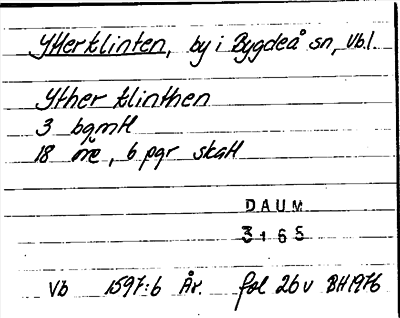 Ytterklinten, by i Bygdeå sn, Vb.l.
Ÿther klinthen
3 bgmtl
18 öre, 6 pgr skatt
DAUM
3165
Vb 1597:6 År. fol 26v BH1976